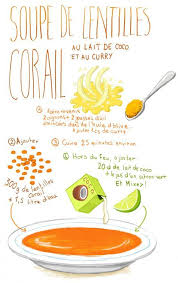 SOUPE DE LENTILLES
CORAIL
AU LAIT DE COCO
ET AU CURRY
① Faire revenir
2 oignons + 2 gousses d'ail
émincées dans de l'huile d'olive
+ ajouter 1 cs de curry
② Ajouter
300g de lentilles
corail
+ 1,5 litre d'eau
③ Cuire 25 minutes environ
④ Hors du feu, ajouter
20 cl de lait de coco
+ le jus d'un citron vert
ET Mixez!
COCO